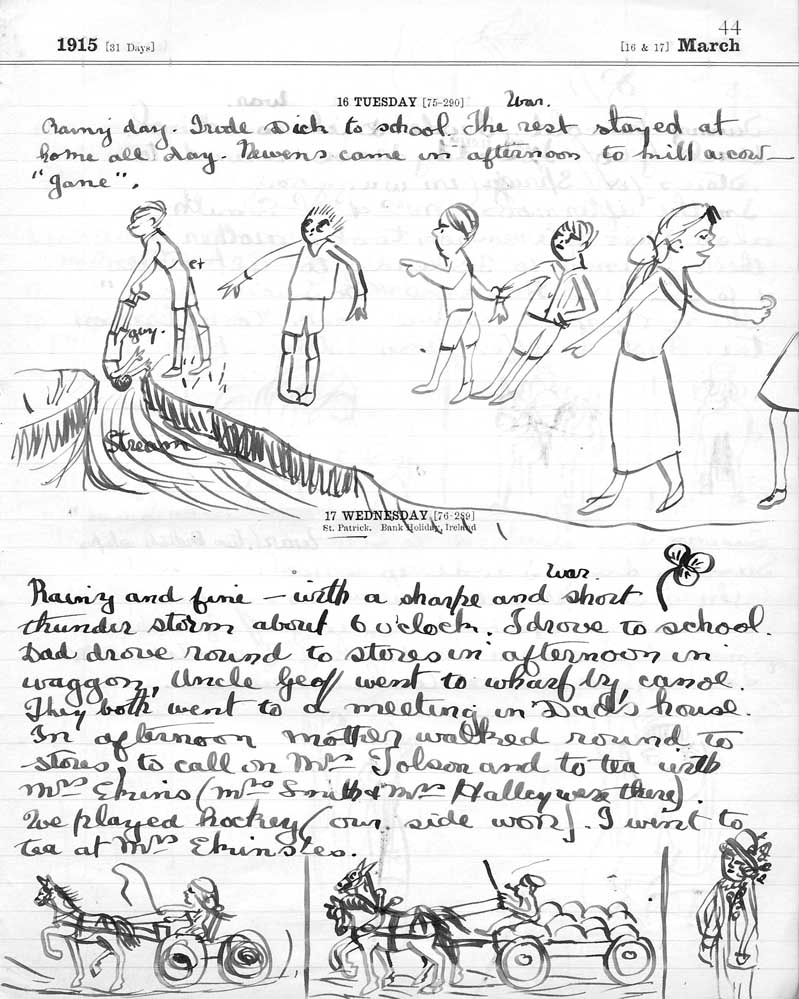 44
1915 [31 Days] [16 & 17] March
16 TUESDAY [75-290] War.
Rainy day. I rode Dick to school. The rest stayed at
home all day. Newens came in afternoon to kill a cow —
"Jane".
guy.
Stream
17 WEDNESDAY [76-289]
St. Patrick. Bank Holiday, Ireland
War.
Rainy and fine — with a sharpe and short
thunder storm about 6 o'clock. I drove to school.
Dad drove round to stores in afternoon in
waggon, Uncle Geoff went to wharf by canoe.
They both went to a meeting in Dad's house.
In afternoon mother walked round to
stores to call on Mrs Tolson and to tea with
Mrs Ekins (Mrs Smith & Mrs Halley were there).
We played hockey (our side won). I went to
tea at Mrs Ekins